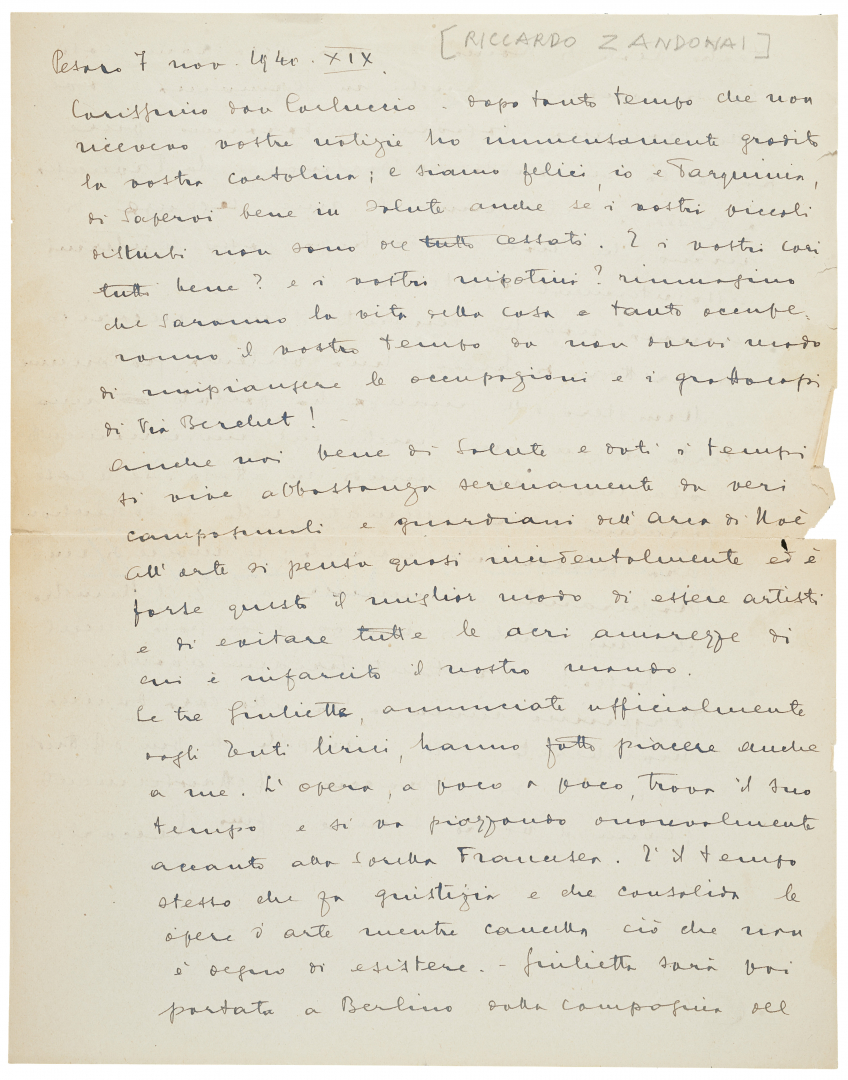 [RICCARDO ZANDONAI]
Pesaro 7 nov. 1940. XIX.
Carissimo don Carluccio: dopo tanto tempo che non
ricevevo vostre notizie ho immensamente gradito
la vostra cartolina; e siamo felici, io e Tarquinia,
di sapervi bene in salute anche se i vostri piccoli
disturbi non sono del tutto cessati. E i vostri cari
tutti bene? e i vostri nipotini? rimmagino
che saranno la vita della casa e tanto occupe-
ranno il vostro tempo da non darvi modo
di rimpiangere le occupazioni e i grattacapi
di Via Berchet!
Anche noi bene di salute e dati i tempi
si vive abbastanza serenamente da veri
campagnuoli e guardiani dell'Arca di Noè
All'arte si pensa quasi incidentalmente ed è
forse questo il miglior modo di essere artisti
e di evitare tutte le acri amarezze di
cui è rifarcito il nostro mondo.
Le tre Giuliette, annunciate ufficialmente
dagli Enti lirici, hanno fatto piacere anche
a me. L'opera, a poco a poco, trova il suo
tempo e si va piazzando onorevolmente
accanto alla sorella Francesca. È il tempo
stesso che fa giustizia e che consolida le
opere d'arte mentre cancella ciò che non
è degno di esistere. - Giulietta sarà poi
portata a Berlino dalla compagnia del